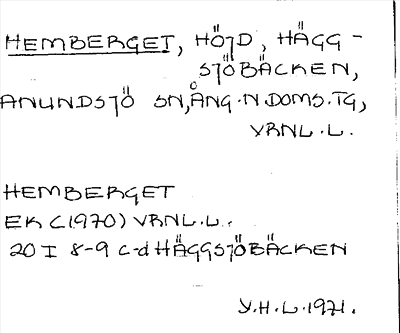 HEMBERGET, HÖJD, HÄGG-
SJÖBÄCKEN,
ANUNDSJÖ SN, ÅNG. N. DOMS. TG,
VRNL. L.
HEMBERGET
EK (1970) VRNL. L.
20 I 8-9 c-d HÄGGSJÖBÄCKEN
Y.H.L. 1971.